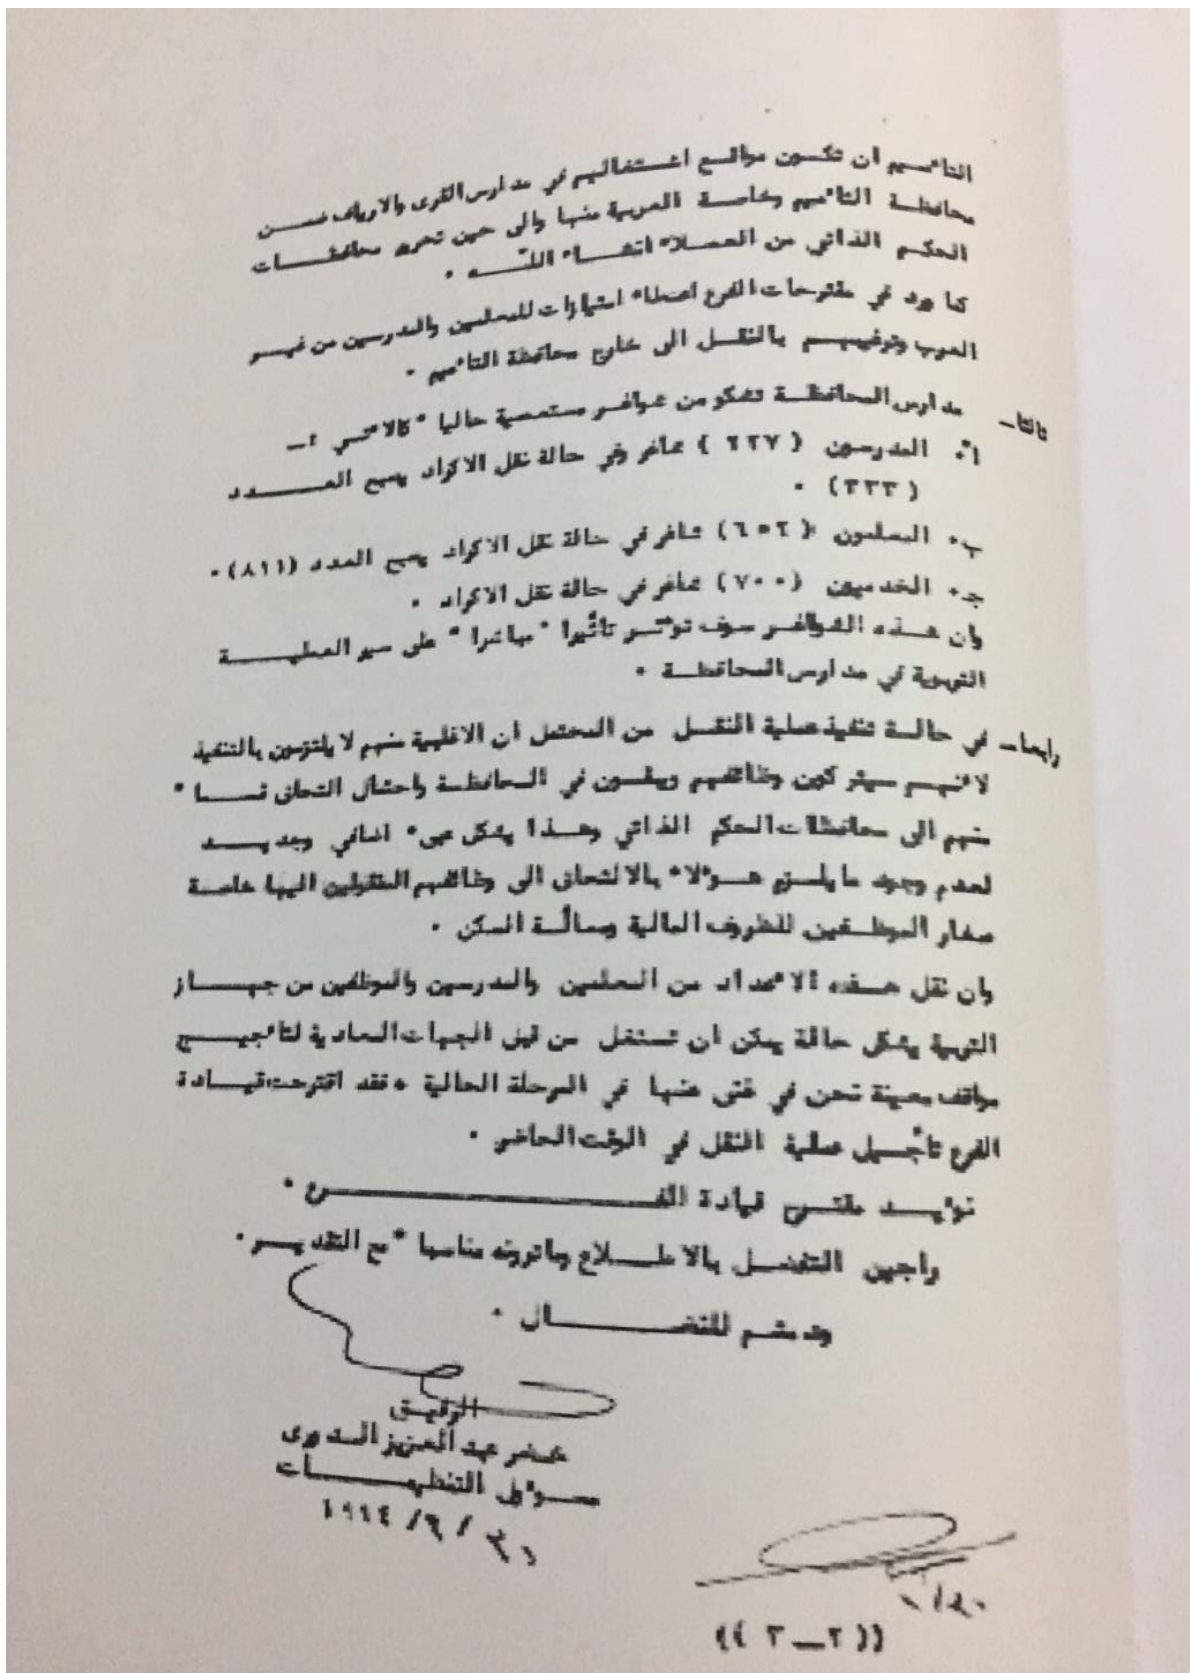 التاميم ان تكون مواقع اشتغاليم في مدارس القرى والارياف ضمن
محافظة التاميم وخاصة العربية منها والى حين تحرير محافظات
الحكم الذاتي من العملاء انشاء اللّه .
كما ورد في مقترحات الفرع اعطاء امتيازات للمعلمين والمدرسين من غير
العرب وترغيبهم بالنقل الى خارج محافظة التاميم .
ثالثا - مدارس المحافظة تشكو من شواغر مستعصية حاليا " كالاتي :-
أ. المدرسون ( ٢٢٧ ) شاغر وفي حالة نقل الاكراد يصبح العدد
( ٣٣٣ ) .
ب. المعلمون ( ٦٥٢ ) شاغر في حالة نقل الاكراد يصبح العدد (٨١١) .
جـ. الخدميون ( ٧٠٠ ) شاغر في حالة نقل الاكراد .
وان هذه الشواغر سوف تؤثر تأثيرا " مباشرا " على سير العملية
التربوية في مدارس المحافظة .
رابعا - في حالة تنفيذ عملية النقل من المحتمل ان الاغلبية منهم لا يلتزمون بالتنفيذ
لانهم سيتركون وظائفهم ويبقون في المحافظة واحتمال التحاق قسما "
منهم الى محافظات الحكم الذاتي وهذا يشكل عبء اضافي وجديد
لعدم وجود ما يلزم هؤلاء بالالتحاق الى وظائفهم المنقولين اليها خاصة
صغار الموظفين للظروف المالية ومسألة السكن .
وان نقل هذه الاعداد من المعلمين والمدرسين والموظفين من جهاز
التربية يشكل حالة يمكن ان تستغل من قبل الجهات المعادية لتاجيج
مواقف معينة نحن في غنى عنها في المرحلة الحالية . فقد اقترحت قيادة
الفرع تأجيل عملية النقل في الوقت الحاضر .
نؤيد مقترح قيادة الفرع .
راجين التفضل بالاطلاع وماترونه مناسبا " مع التقدير .
ودمتم للنضال .
الرفيق
خضر عبد العزيز الدوري
مسؤول التنظيمات
١٩٩٤/٦/
(( ٢ - ٣ ))